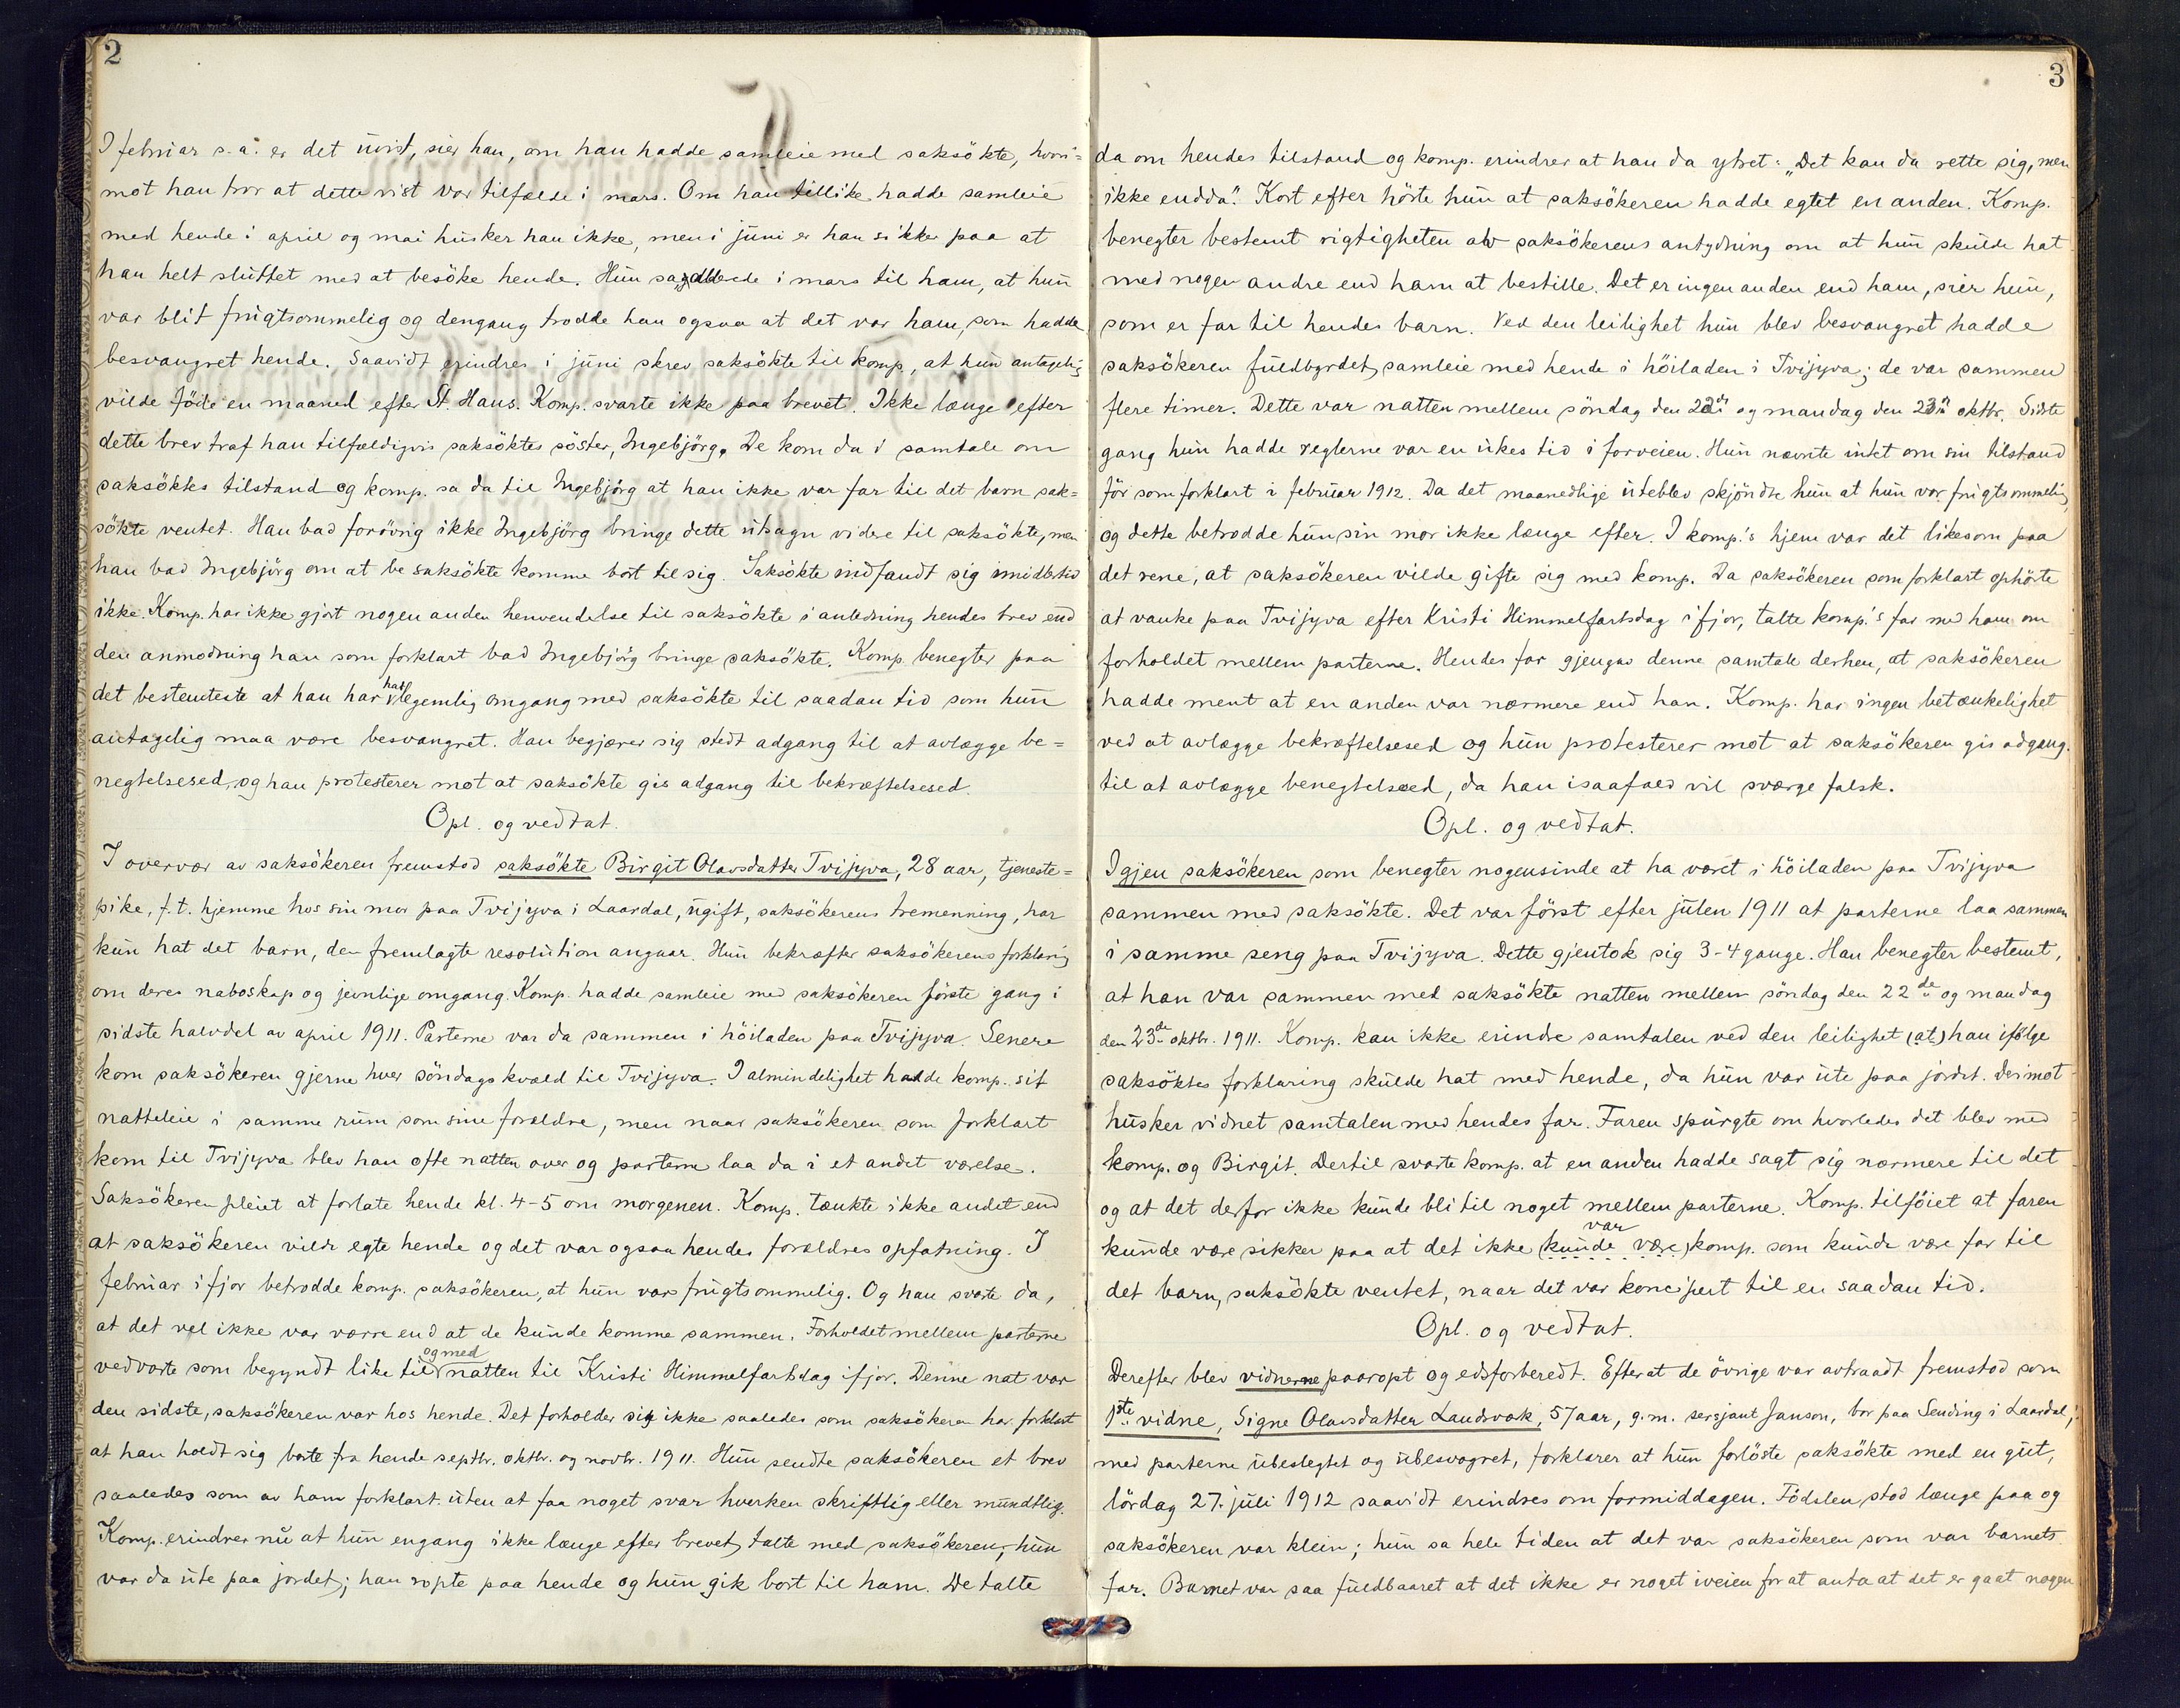 2
I februar s.a. er det uvist, sier han, om han hadde samleie med saksökte, hvori=
mot han tror at dette vist var tilfælde i mars. Om han tillike hadde samleie
med hende i april og mai husker han ikke, men i juni er han sikker paa at
han helt sluttet med at besöke hende. Hun sa allerede i mars til ham, at hun
var blit frugtsommelig og dengang trodde han ogsaa at det var ham, som hadde
besvangret hende. Saavidt erindres i juni skrev saksökte til komp., at hun antagelig
vilde föde en maaned efter St Hans. Komp. svarte ikke paa brevet. Ikke længe efter
dette brev traf han tilfældigvis saksöktes söster, Ingebjörg. De kom da i samtale om
saksöktes tilstand og komp. sa da til Ingebjörg at han ikke var far til det barn sak=
sökte ventet. Han bad forövrig ikke Ingebjörg bringe dette utsagn videre til saksökte, men
han bad Ingebjörg om at be saksökte komme bort til sig. Saksökte indfandt sig imidlertid
ikke. Komp. har ikke gjort nogen anden henvendelse til saksökte i anledning hendes brev end
den anmodning han som forklart bad Ingebjörg bringe saksökte. Komp. benegter paa
det bestemteste at han har hat legemlig omgang med saksökte til saadan tid som hun
antagelig maa være besvangret. Han begjærer sig stedt adgang til at avlægge be=
negtelsesed, og han protesterer mot at saksökte gis adgang til bekræftelsesed.
Opl. og vedtat.
I overvær av saksökeren fremstod saksökte Birgit Olavsdatter Tvijyva, 28 aar, tjeneste=
pike, f.t. hjemme hos sin mor paa Tvijyva i Laardal, ugift, saksökerens tremenning, har
kun hat det barn, den fremlagte resolution angaar. Hun bekræfter saksökerens forklaring
om deres naboskap og jevnlige omgang. Komp. hadde samleie med saksökeren förste gang i
sidste halvdel av april 1911. Parterne var da sammen i höiladen paa Tvijyva. Senere
kom saksökeren gjerne hver söndags kvæld til Tvijyva. I almindelighet hadde komp. sit
natteleie i samme rum som sine forældre, men naar saksökeren som forklart
kom til Tvijyva blev han ofte natten over og parterne laa da i et andet værelse.
Saksökeren pleiet at forlate hende kl. 4-5 om morgenen. Komp. tænkte ikke andet end
at saksökeren vilde egte hende og det var ogsaa hendes forældres opfatning. I
februar ifjor betrodde komp. saksökeren, at hun var frugtsommelig. Og han svarte da,
at det vel ikke var værre end at de kunde komme sammen. Forholdet mellem parterne
vedvarte som begyndt like til og med natten til Kristi Himmelfartsdag ifjor. Denne nat var
den sidste, saksökeren var hos hende. Det forholder sig ikke saaledes som saksökeren har forklart
at han holdt sig borte fra hende septbr. oktbr. og novbr. 1911. Hun sendte saksökeren et brev
saaledes som av ham forklart uten at faa noget svar hverken skriftlig eller mundtlig.
Komp. erindrer nu at hun engang ikke længe efter brevet talte med saksökeren; hun
var da ute paa jordet; han ropte paa hende og hun gik bort til ham. De talte
3
da om hendes tilstand og komp. erindrer at han da ytret: "Det kan da rette sig, men
ikke endda". Kort efter hörte hun at saksökeren hadde egtet en anden. Komp.
benegter bestemt rigtigheten av saksökerens antydning om at hun skulde hat
med nogen andre end ham at bestille. Det er ingen anden end ham, sier hun,
som er far til hendes barn. Ved den leilighet hun blev besvangret hadde
saksökeren fuldbyrdet samleie med hende i höiladen i Tvijyva; de var sammen
flere timer. Dette var natten mellem söndag den 22de og mandag den 23de oktbr. Sidste
gang hun hadde reglerne var en ukes tid i forveien. Hun nævnte intet om sin tilstand
för som forklart i februar 1912. Da det maanedlige uteblev skjöndte hun at hun var frugtsommelig
og dette betrodde hun sin mor ikke længe efter. I komp.'s hjem var det likesom paa
det rene, at saksökeren vilde gifte sig med komp. Da saksökeren som forklart ophörte
at vanke paa Tvijyva efter Kristi Himmelfartsdag ifjor, talte komp.'s far med ham om
forholdet mellem parterne. Hendes far gjengav denne samtale derhen, at saksökeren
hadde ment at en anden var nærmere end han. Komp. har ingen betænkelighet
ved at avlægge bekræftelsesed og hun protesterer mot at saksökeren gis adgang
til at avlægge benegtelsesed, da han isaafald vil sværge falsk.
Opl. og vedtat.
Igjen saksökeren som benegter nogensinde at ha været i höiladen paa Tvijyva
sammen med saksökte. Det var först efter julen 1911 at parterne laa sammen
i samme seng paa Tvijyva. Dette gjentok sig 3-4 gange. Han benegter bestemt,
at han var sammen med saksökte natten mellem söndag den 22de og mandag
den 23de oktbr. 1911. Komp. kan ikke erindre samtalen ved den leilighet (at) han ifölge
saksöktes forklaring skulde hat med hende, da hun var ute paa jordet. Derimot
husker vidnet samtalen med hendes far. Faren spurgte om hvorledes det blev med
komp. og Birgit. Dertil svarte komp. at en anden hadde sagt sig nærmere til det
og at det derfor ikke kunde bli til noget mellem parterne. Komp. tilföiet at faren
kunde være sikker paa at det ikke (kunde være) var komp. som kunde være far til
det barn, saksökte ventet, naar det var koncipert til en saadan tid.
Opl. og vedtat.
Derefter blev vidnerne paaropt og edsforberedt. Efterat de övrige var avtraadt fremstod som
1ste vidne, Signe Olavsdatter Landsvæk, 57 aar, g.m. sersjant Janson, bor paa Sending i Laardal,
med parterne ubeslegtet og ubesvogret, forklarer at hun forlöste saksökte med en gut,
lördag 27. juli 1912 saavidt erindres om formiddagen. Födslen stod længe paa og
saksökeren var klein; hun sa hele tiden at det var saksökeren som var barnets
far. Barnet var saa fuldbaaret at det ikke er noget iveien for at anta at det er gaat nogen